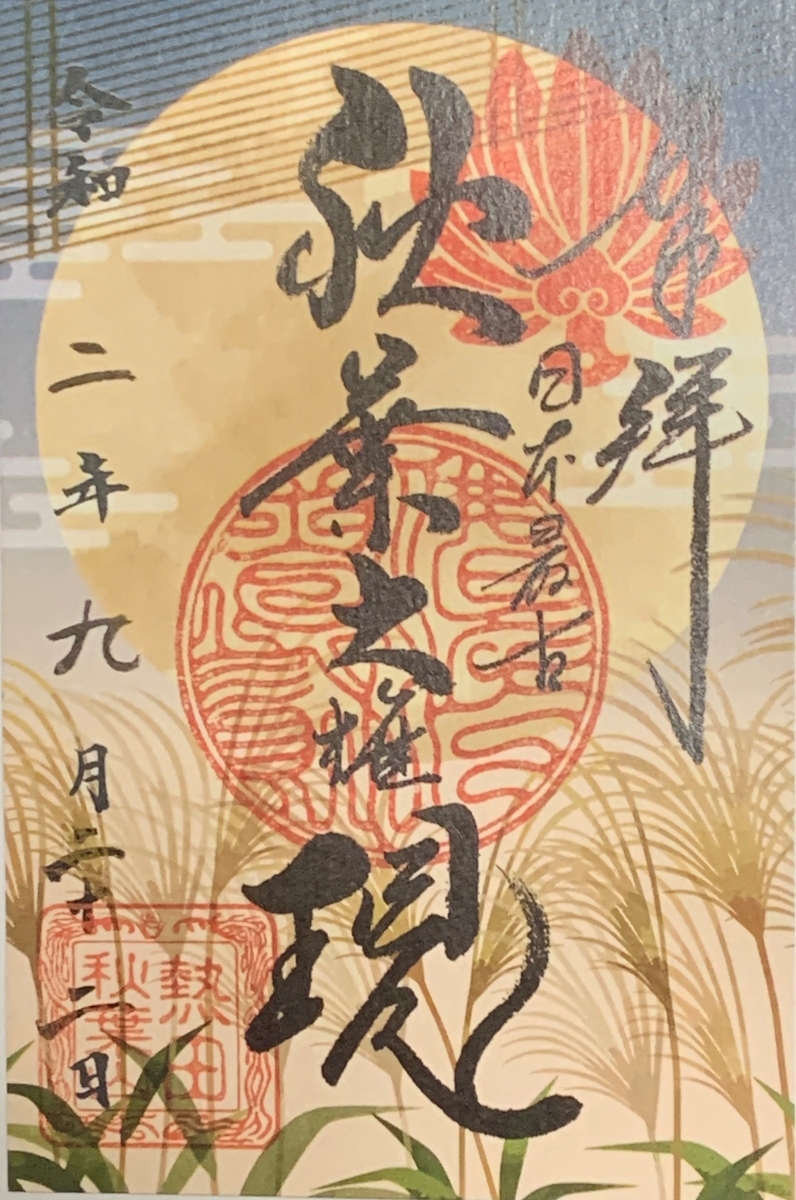 奉拝
日本最古
秋葉大権現
令和二年九月二十二日
熱田
秋葉山